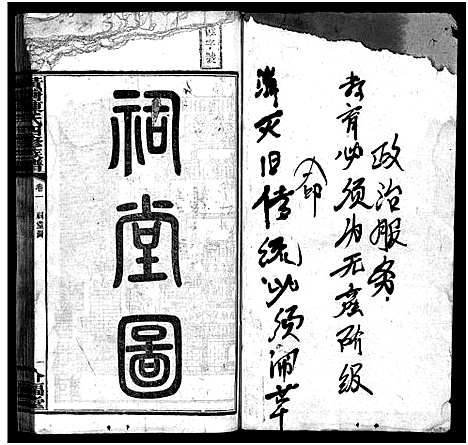 教育必须为无产阶级
政治服务
消灭旧传统必须闹革
祠堂圖
字號
卷一
祠堂圖